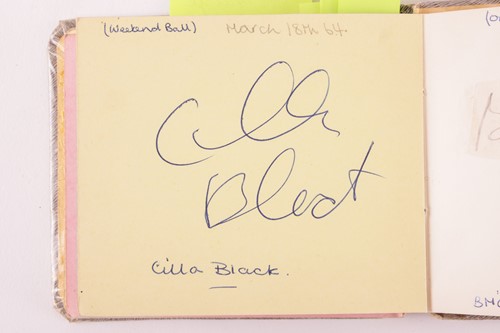 (Weekend Ball) March 18th 64.
Cilla
Black
Cilla Black.